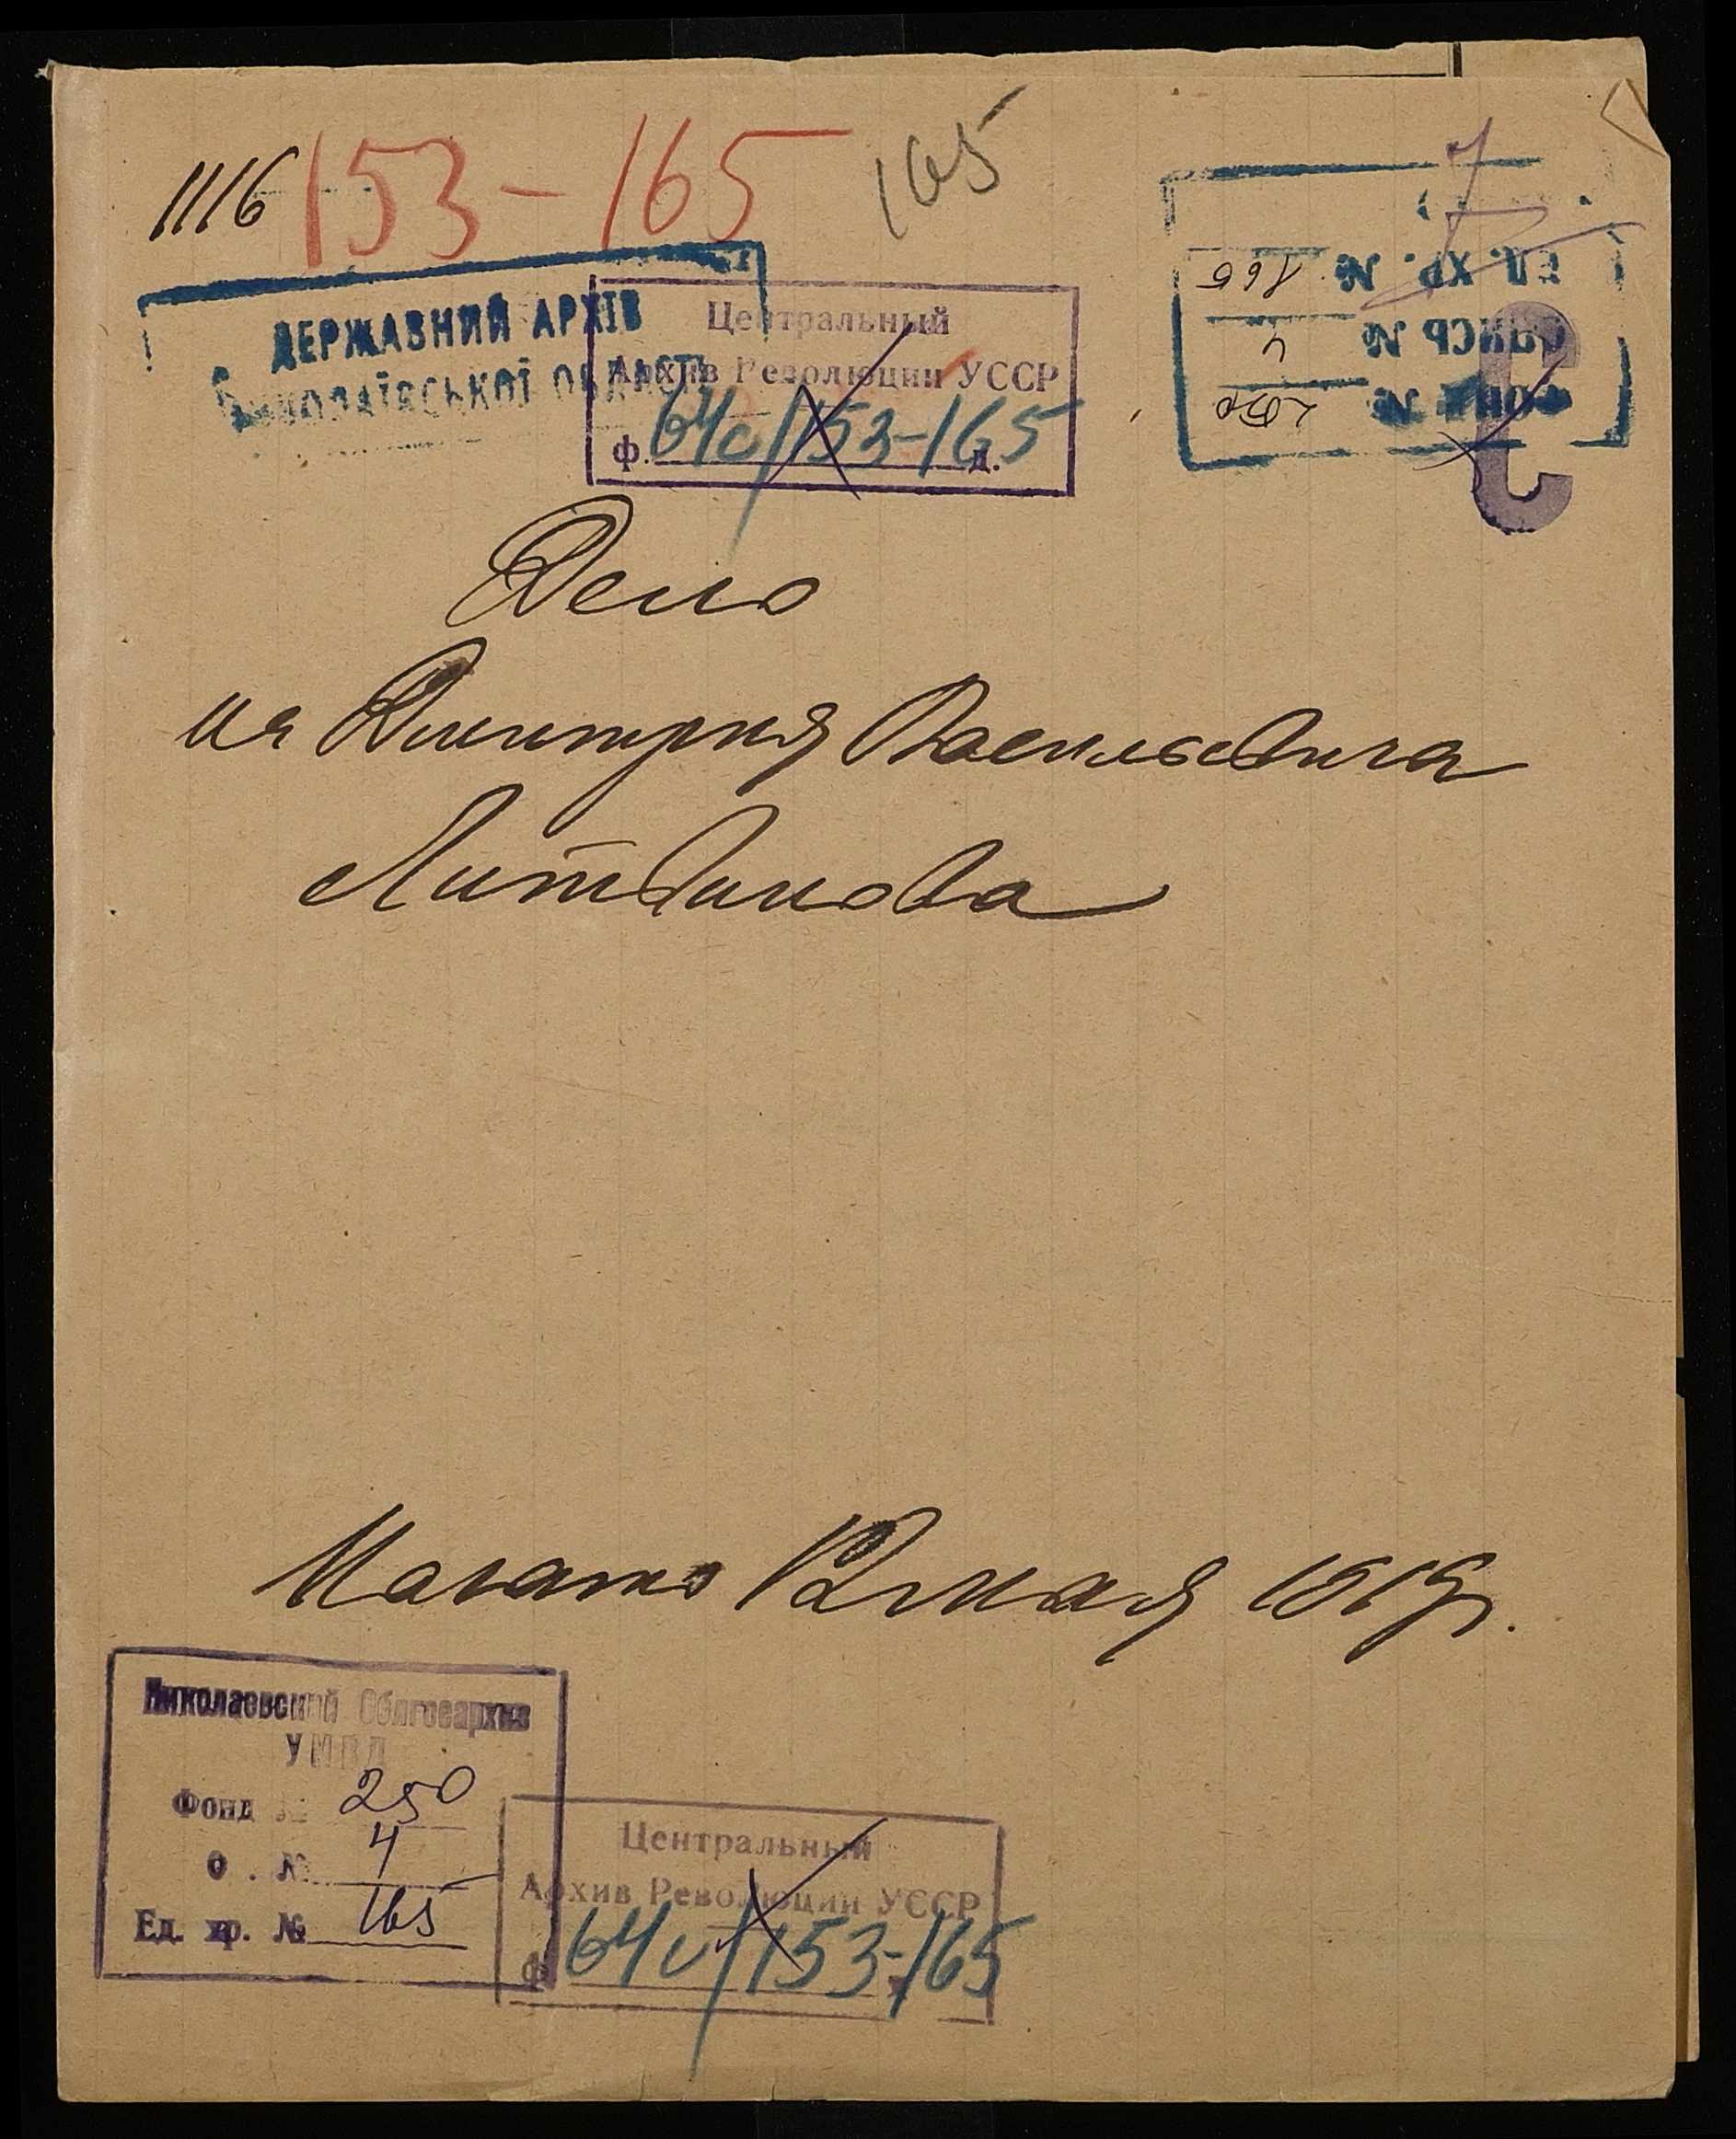 1116 153-165 165
ДЕРЖАВНИЙ АРХІВ
МИКОЛАЇВСЬКОЇ ОБЛАСТІ
Центральный
Архив Революции УССР
ф. 64с/153-165 д.
ФОНД № 250
ОПИСЬ № 4
ЕД. ХР. № 165
Дело
на Димитрия Васильевича
Литвинова
Начато 12 мая 1919 г.
Николаевский Облгосархив
УМВД
Фонд № 250
О . № 4
Ед. хр. № 165
Центральный
Архив Революции УССР
ф. 64с/153-165